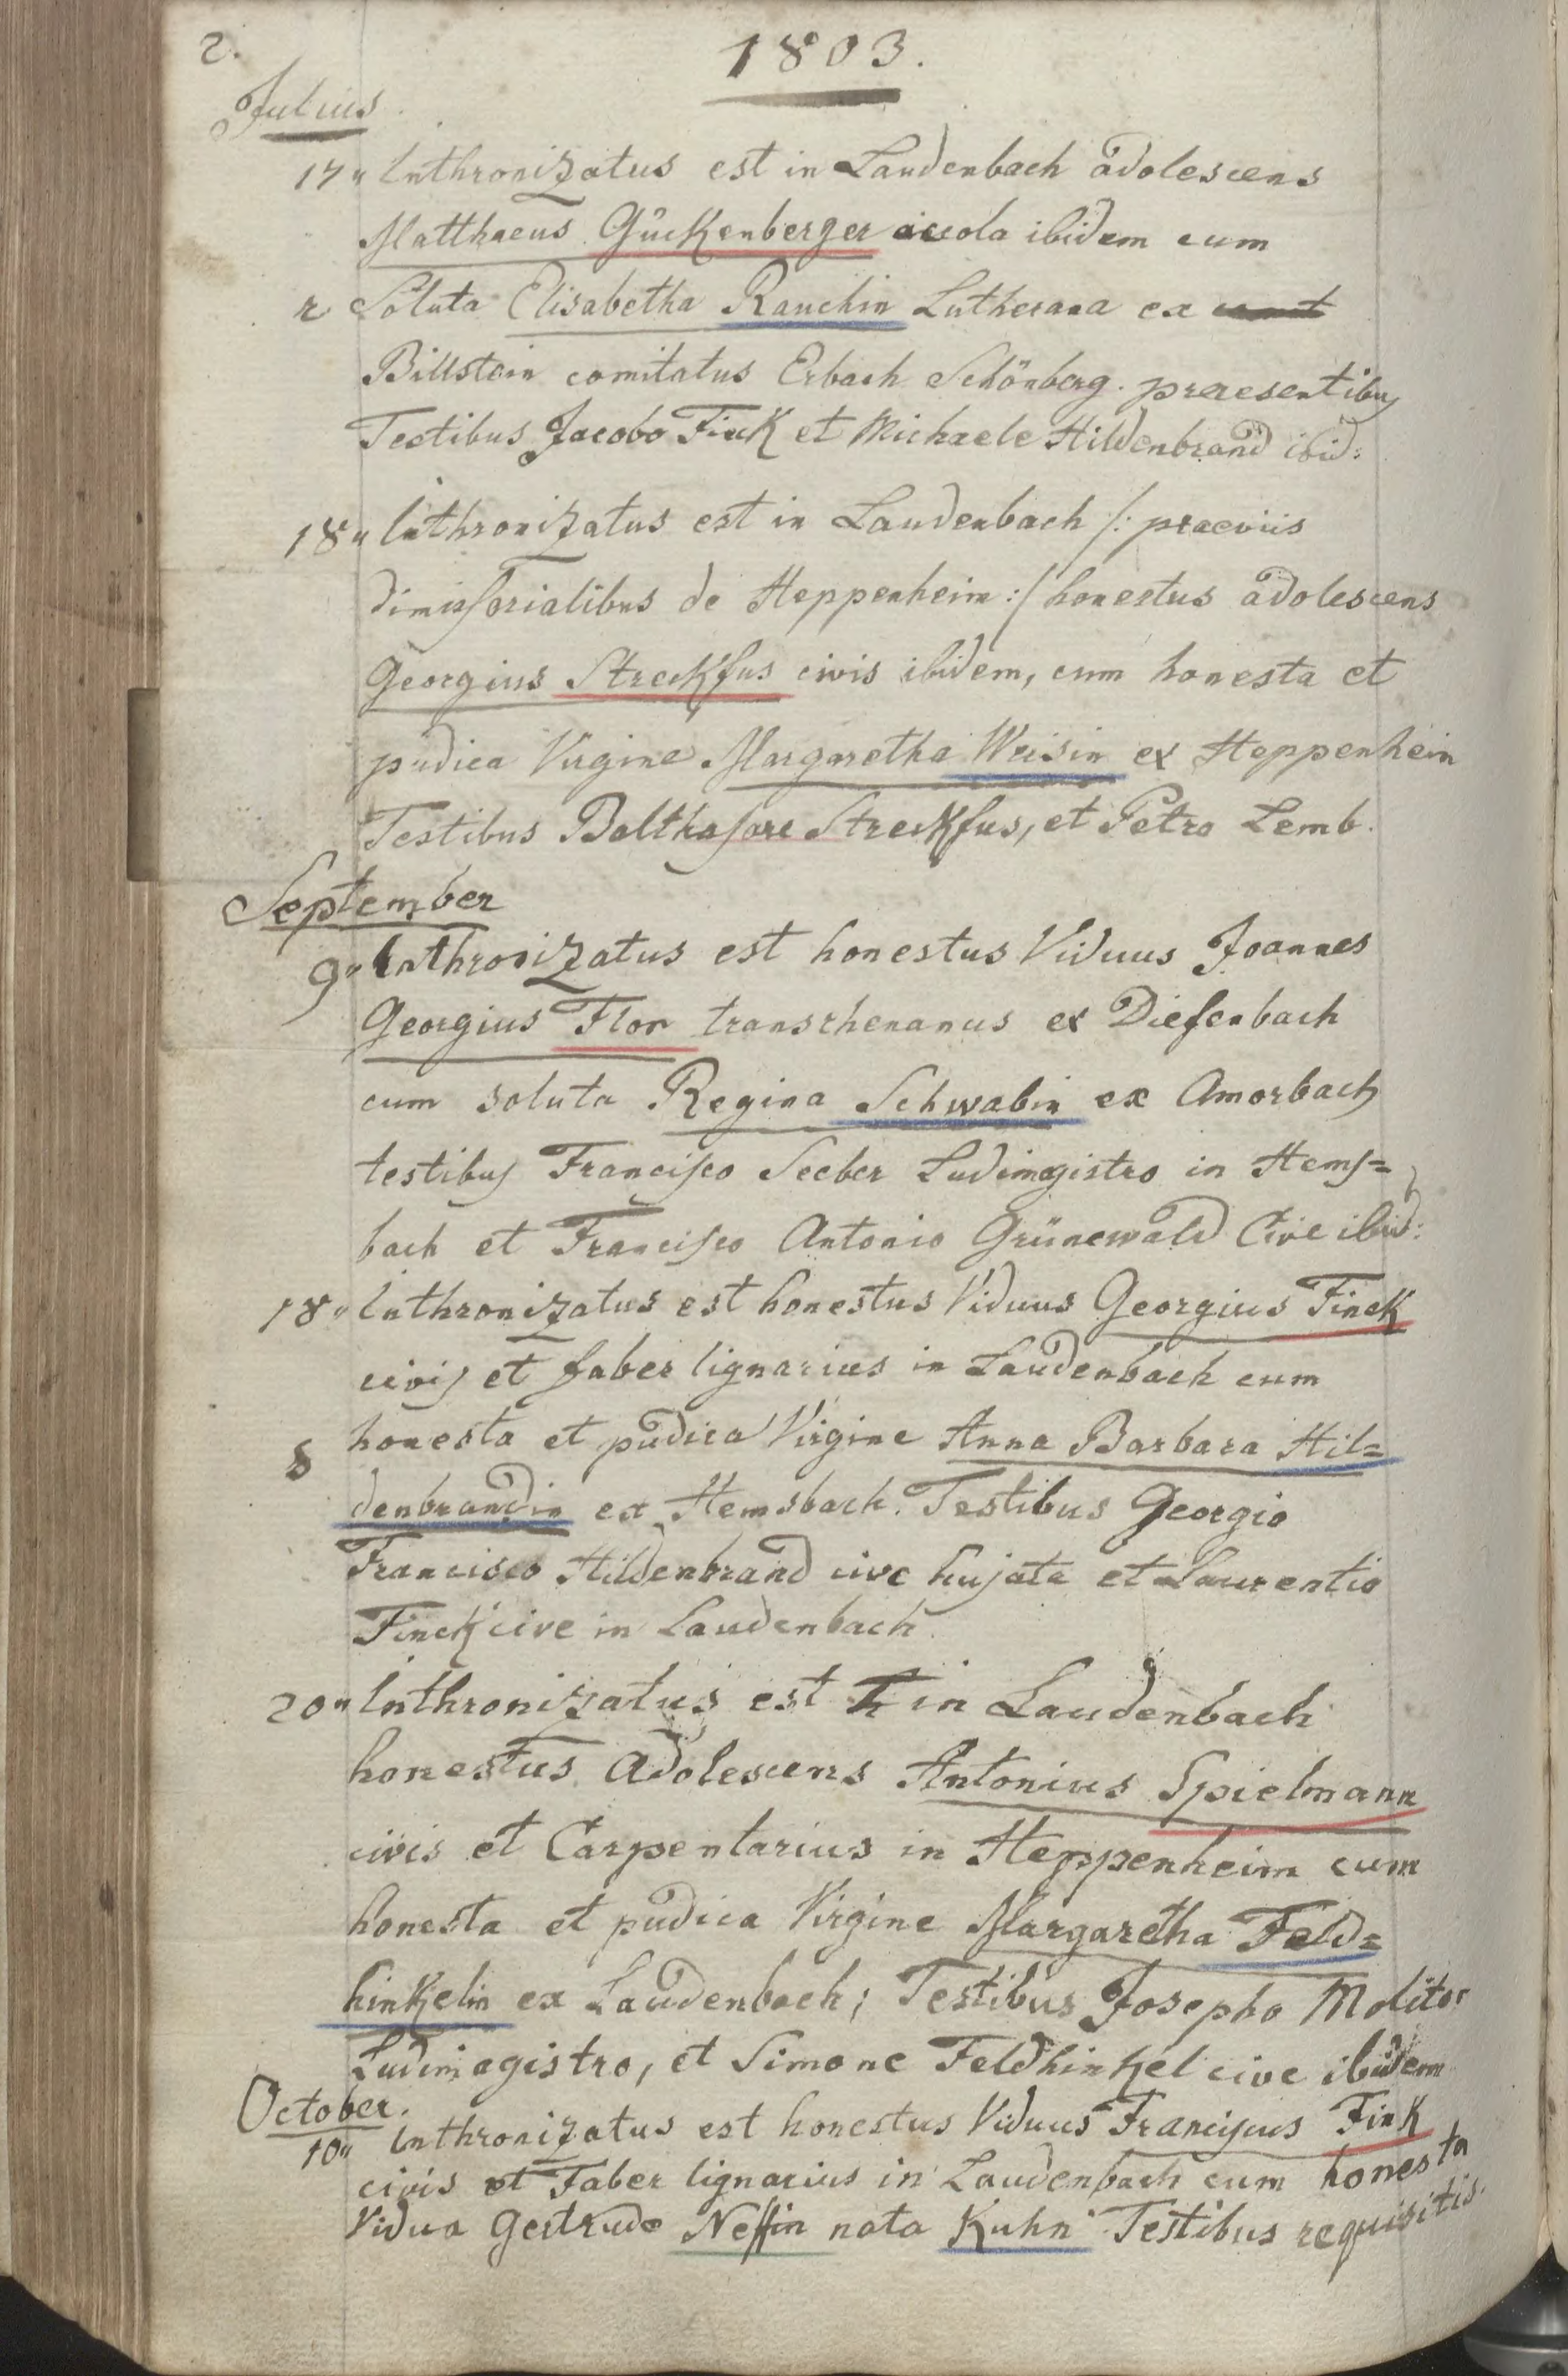 2.
1803.
Julius
17" Inthronizatus est in Laudenbach adolescens
Matthaeus Gückenberger accola ibidem cum
r Soluta Elisabetha Rauchin Lutherana ex
Billstein comitatus Erbach Schönberg. praesentibus
Testibus Jacobo Finck et Michaele Hildenbrand ibid:
18" Inthronizatus est in Laudenbach /: praeviis
dimissorialibus de Heppenheim :/ honestus adolescens
Georgius Streckfus civis ibidem, cum honesta et
pudica Virgine Margaretha Weisin ex Heppenhein
Testibus Balthasare Streckfus, et Petro Lemb.
September
9" Inthronizatus est honestus Viduus Joannes
Georgius Flor transrhenanus ex Diefenbach
cum soluta Regina Schwabin ex Amorbach
testibus Francisco Seeber Ludimagistro in Hems=
bach et Francisco Antonio Grünewald Cive ibid:
18" Inthronizatus est honestus Viduus Georgius Finck
civis et faber lignarius in Laudenbach cum
8 honesta et pudica Virgine Anna Barbara Hil=
denbrandin ex Hemsbach. Testibus Georgio
Francisco Hildenbrand cive hujate et Laurentio
Finck cive in Laudenbach.
20" Inthronizatus est in Laudenbach
honestus Adolescens Antonius Spielmann
civis et Carpentarius in Heppenheim cum
honesta et pudica Virgine Margaretha Feld=
hinkelin ex Laudenbach; Testibus Josepho Molitor
Ludimagistro, et Simone Feldhinkel cive ibidem
October.
10" Inthronizatus est honestus Viduus Franciscus Fink
civis et Faber lignarius in Laudenbach cum honesta
Vidua Gertrude Neffin nata Kuhn Testibus requisitis.